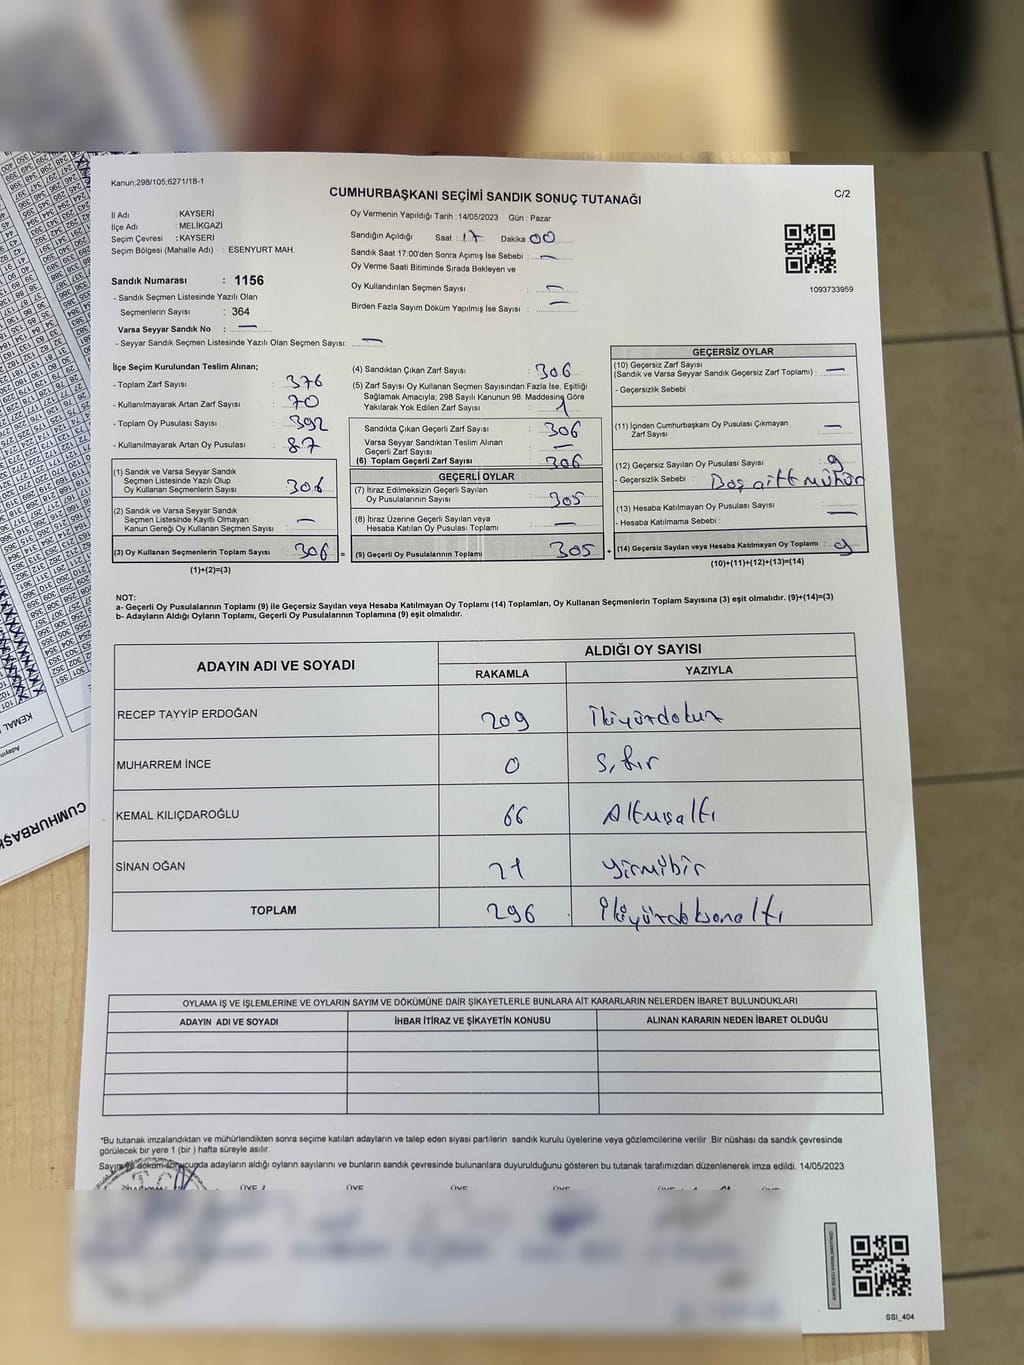 Kanun;298/105;6271/18-1
CUMHURBAŞKANI SEÇİMİ SANDIK SONUÇ TUTANAĞI
C/2
İl Adı : KAYSERİ
İlçe Adı : MELİKGAZİ
Seçim Çevresi : KAYSERİ
Seçim Bölgesi (Mahalle Adı) : ESENYURT MAH.
Oy Vermenin Yapıldığı Tarih :14/05/2023 Gün : Pazar
Sandığın Açıldığı Saat : 17 Dakika : 00
Sandık Saat 17:00'den Sonra Açımış İse Sebebi : —
Oy Verme Saati Bitiminde Sırada Bekleyen ve
Oy Kullandırılan Seçmen Sayısı : —
Birden Fazla Sayım Döküm Yapılmış İse Sayısı : —
1093733959
Sandık Numarası : 1156
- Sandık Seçmen Listesinde Yazılı Olan
Seçmenlerin Sayısı : 364
Varsa Seyyar Sandık No : —
- Seyyar Sandık Seçmen Listesinde Yazılı Olan Seçmen Sayısı: —
İlçe Seçim Kurulundan Teslim Alınan;
- Toplam Zarf Sayısı : 376
- Kullanılmayarak Artan Zarf Sayısı : 70
- Toplam Oy Pusulası Sayısı : 392
- Kullanılmayarak Artan Oy Pusulası : 87
(1) Sandık ve Varsa Seyyar Sandık
Seçmen Listesinde Yazılı Olup
Oy Kullanan Seçmenlerin Sayısı : 306
(2) Sandık ve Varsa Seyyar Sandık
Seçmen Listesinde Kayıtlı Olmayan
Kanun Gereği Oy Kullanan Seçmen Sayısı : —
(3) Oy Kullanan Seçmenlerin Toplam Sayısı : 306 =
(1)+(2)=(3)
(4) Sandıktan Çıkan Zarf Sayısı : 306
(5) Zarf Sayısı Oy Kullanan Seçmen Sayısından Fazla İse, Eşitliği
Sağlamak Amacıyla; 298 Sayılı Kanunun 98. Maddesine Göre
Yakılarak Yok Edilen Zarf Sayısı : 1
Sandıkta Çıkan Geçerli Zarf Sayısı : 306
Varsa Seyyar Sandıktan Teslim Alınan
Geçerli Zarf Sayısı : —
(6) Toplam Geçerli Zarf Sayısı : 306
GEÇERLİ OYLAR
(7) İtiraz Edilmeksizin Geçerli Sayılan
Oy Pusulasının Sayısı : 305
(8) İtiraz Üzerine Geçerli Sayılan veya
Hesaba Katılan Oy Pusulası Toplamı : —
(9) Geçerli Oy Pusulalarının Toplamı : 305 +
GEÇERSİZ OYLAR
(10) Geçersiz Zarf Sayısı
(Sandık ve Varsa Seyyar Sandık Geçersiz Zarf Toplamı) : —
- Geçersizlik Sebebi :
(11) İçinden Cumhurbaşkanı Oy Pusulası Çıkmayan
Zarf Sayısı : —
(12) Geçersiz Sayılan Oy Pusulası Sayısı : 9
- Geçersizlik Sebebi : Boş çift mühür
(13) Hesaba Katılmayan Oy Pusulası Sayısı : —
- Hesaba Katılmama Sebebi :
(14) Geçersiz Sayılan veya Hesaba Katılmayan Oy Toplamı : 9
(10)+(11)+(12)+(13)=(14)
NOT:
a- Geçerli Oy Pusulalarının Toplamı (9) ile Geçersiz Sayılan veya Hesaba Katılmayan Oy Toplamı (14) Toplamları, Oy Kullanan Seçmenlerin Toplam Sayısına (3) eşit olmalıdır. (9)+(14)=(3)
b- Adayların Aldığı Oyların Toplamı, Geçerli Oy Pusulalarının Toplamına (9) eşit olmalıdır.
ADAYIN ADI VE SOYADI
ALDIĞI OY SAYISI
RAKAMLA YAZIYLA
RECEP TAYYİP ERDOĞAN 209 İkiyüzdokuz
MUHARREM İNCE 0 Sıfır
KEMAL KILIÇDAROĞLU 66 Altmışaltı
SİNAN OĞAN 21 yirmibir
TOPLAM 296 ikiyüzdoksanaltı
OYLAMA İŞ VE İŞLEMLERİNE VE OYLARIN SAYIM VE DÖKÜMÜNE DAİR ŞİKAYETLERLE BUNLARA AİT KARARLARIN NELERDEN İBARET BULUNDUKLARI
ADAYIN ADI VE SOYADI İHBAR İTİRAZ VE ŞİKAYETİN KONUSU ALINAN KARARIN NEDEN İBARET OLDUĞU
*Bu tutanak imzalandıktan ve mühürlendikten sonra seçime katılan adayların ve talep eden siyasi partilerin sandık kurulu üyelerine veya gözlemcilerine verilir .Bir nüshası da sandık çevresinde
görülecek bir yere 1 (bir ) hafta süreyle asılır.
Sayım ve döküm sonucunda adayların aldığı oyların sayılarını ve bunların sandık çevresinde bulunanlara duyurulduğunu gösteren bu tutanak tarafımızdan düzenlenerek imza edildi. 14/05/2023
ÜYE ÜYE ÜYE ÜYE ÜYE ÜYE
SSI_404